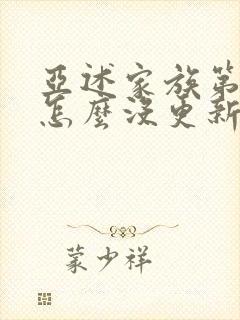 亞述家族第
怎麼沒更新
蒙少祥